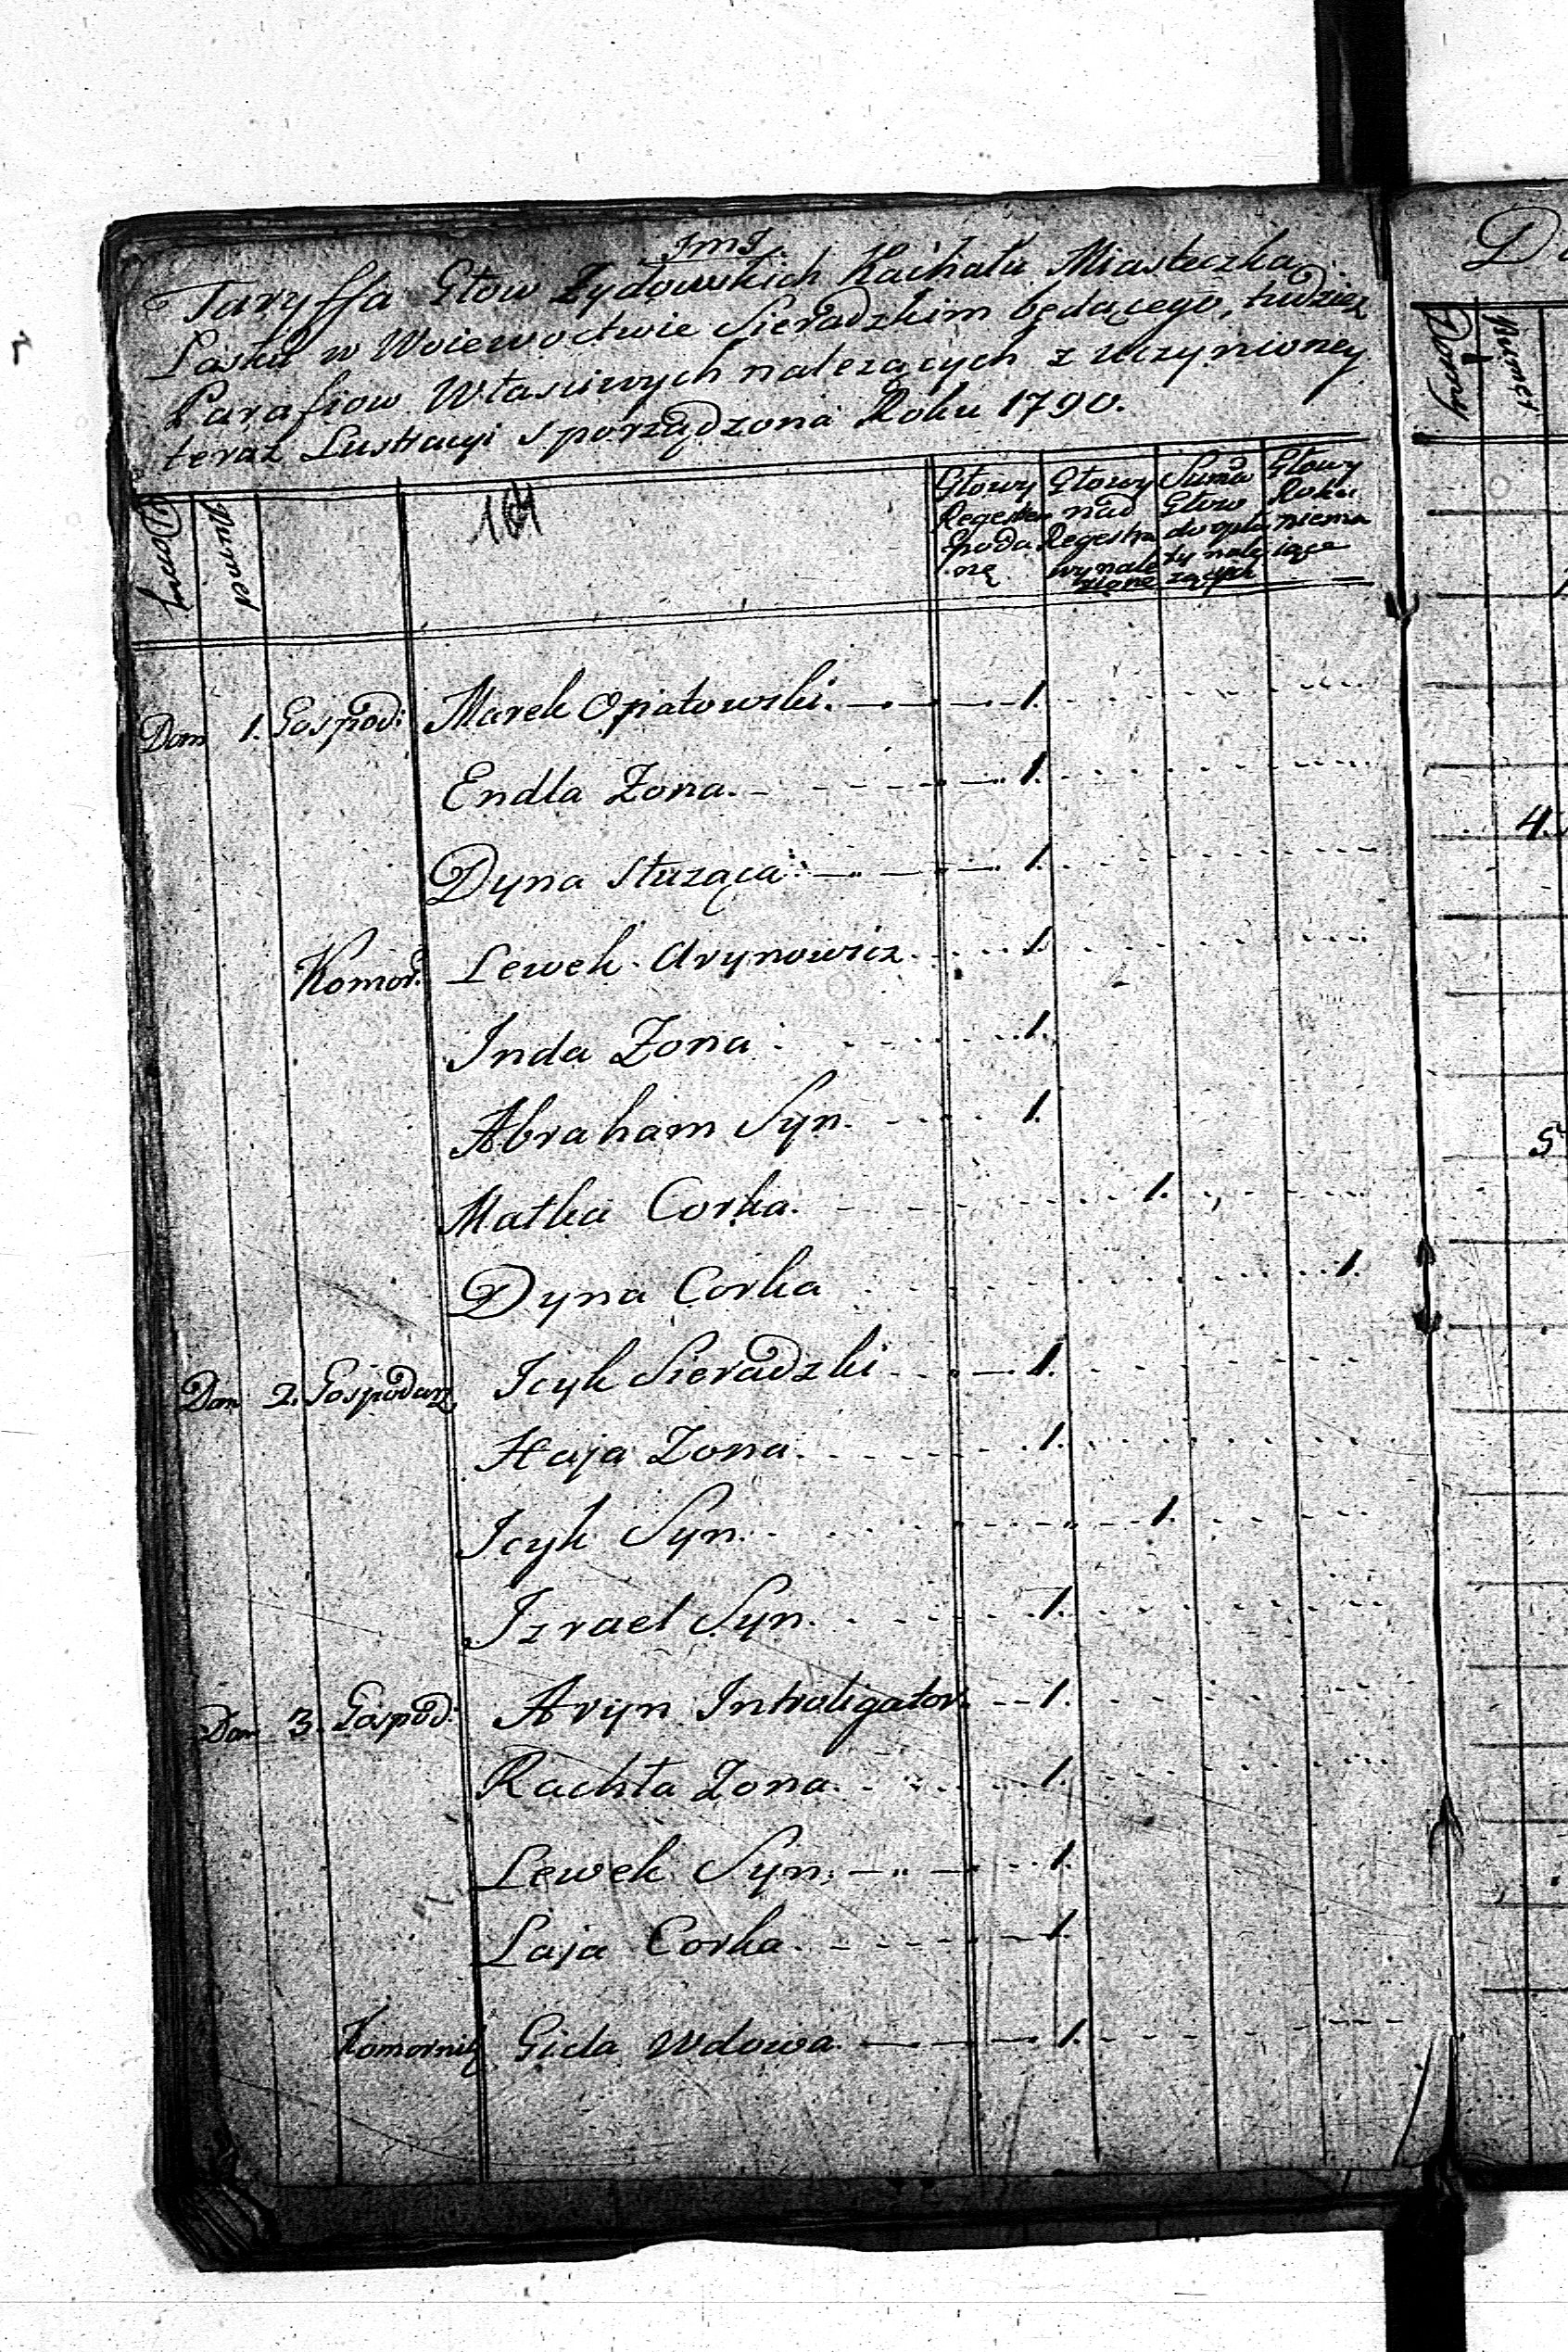 JmJ.
Taryffa Głow Zydowskich Kachału Miasteczka
Łasku w Woiewoctwie Sieradzkim będącego, tudziez
Parafiow Własciwych nalezących z uczynioney
teraz Lustracyi sporządzona Roku 1790.
Domy
Numer
164
Głowy Regestrem podane
Głowy nad Regestra wynalezione
Suma Głow do opłaty należących
Głowy Roku niemaiące
Dom 1. Gospod: Marek Opatowski. 1.
Endla Zona. 1.
Dyna słuząca 1.
Komor. Lewek Arynowicz 1.
Inda Zona 1.
Abraham Syn. 1.
Malka Corka. 1.
Dyna Corka 1.
Dom 2. Gospodarz Icyk Sieradzki 1.
Haja Zona. 1.
Icyk Syn. 1.
Izrael Syn. 1.
Dom 3. Gospod: Aryn Introligator. 1.
Rachla Zona. 1.
Lewek Syn. 1.
Laja Corka. 1.
Komornik Gitla Wdowa. 1.
Domy
Numer
4.
5